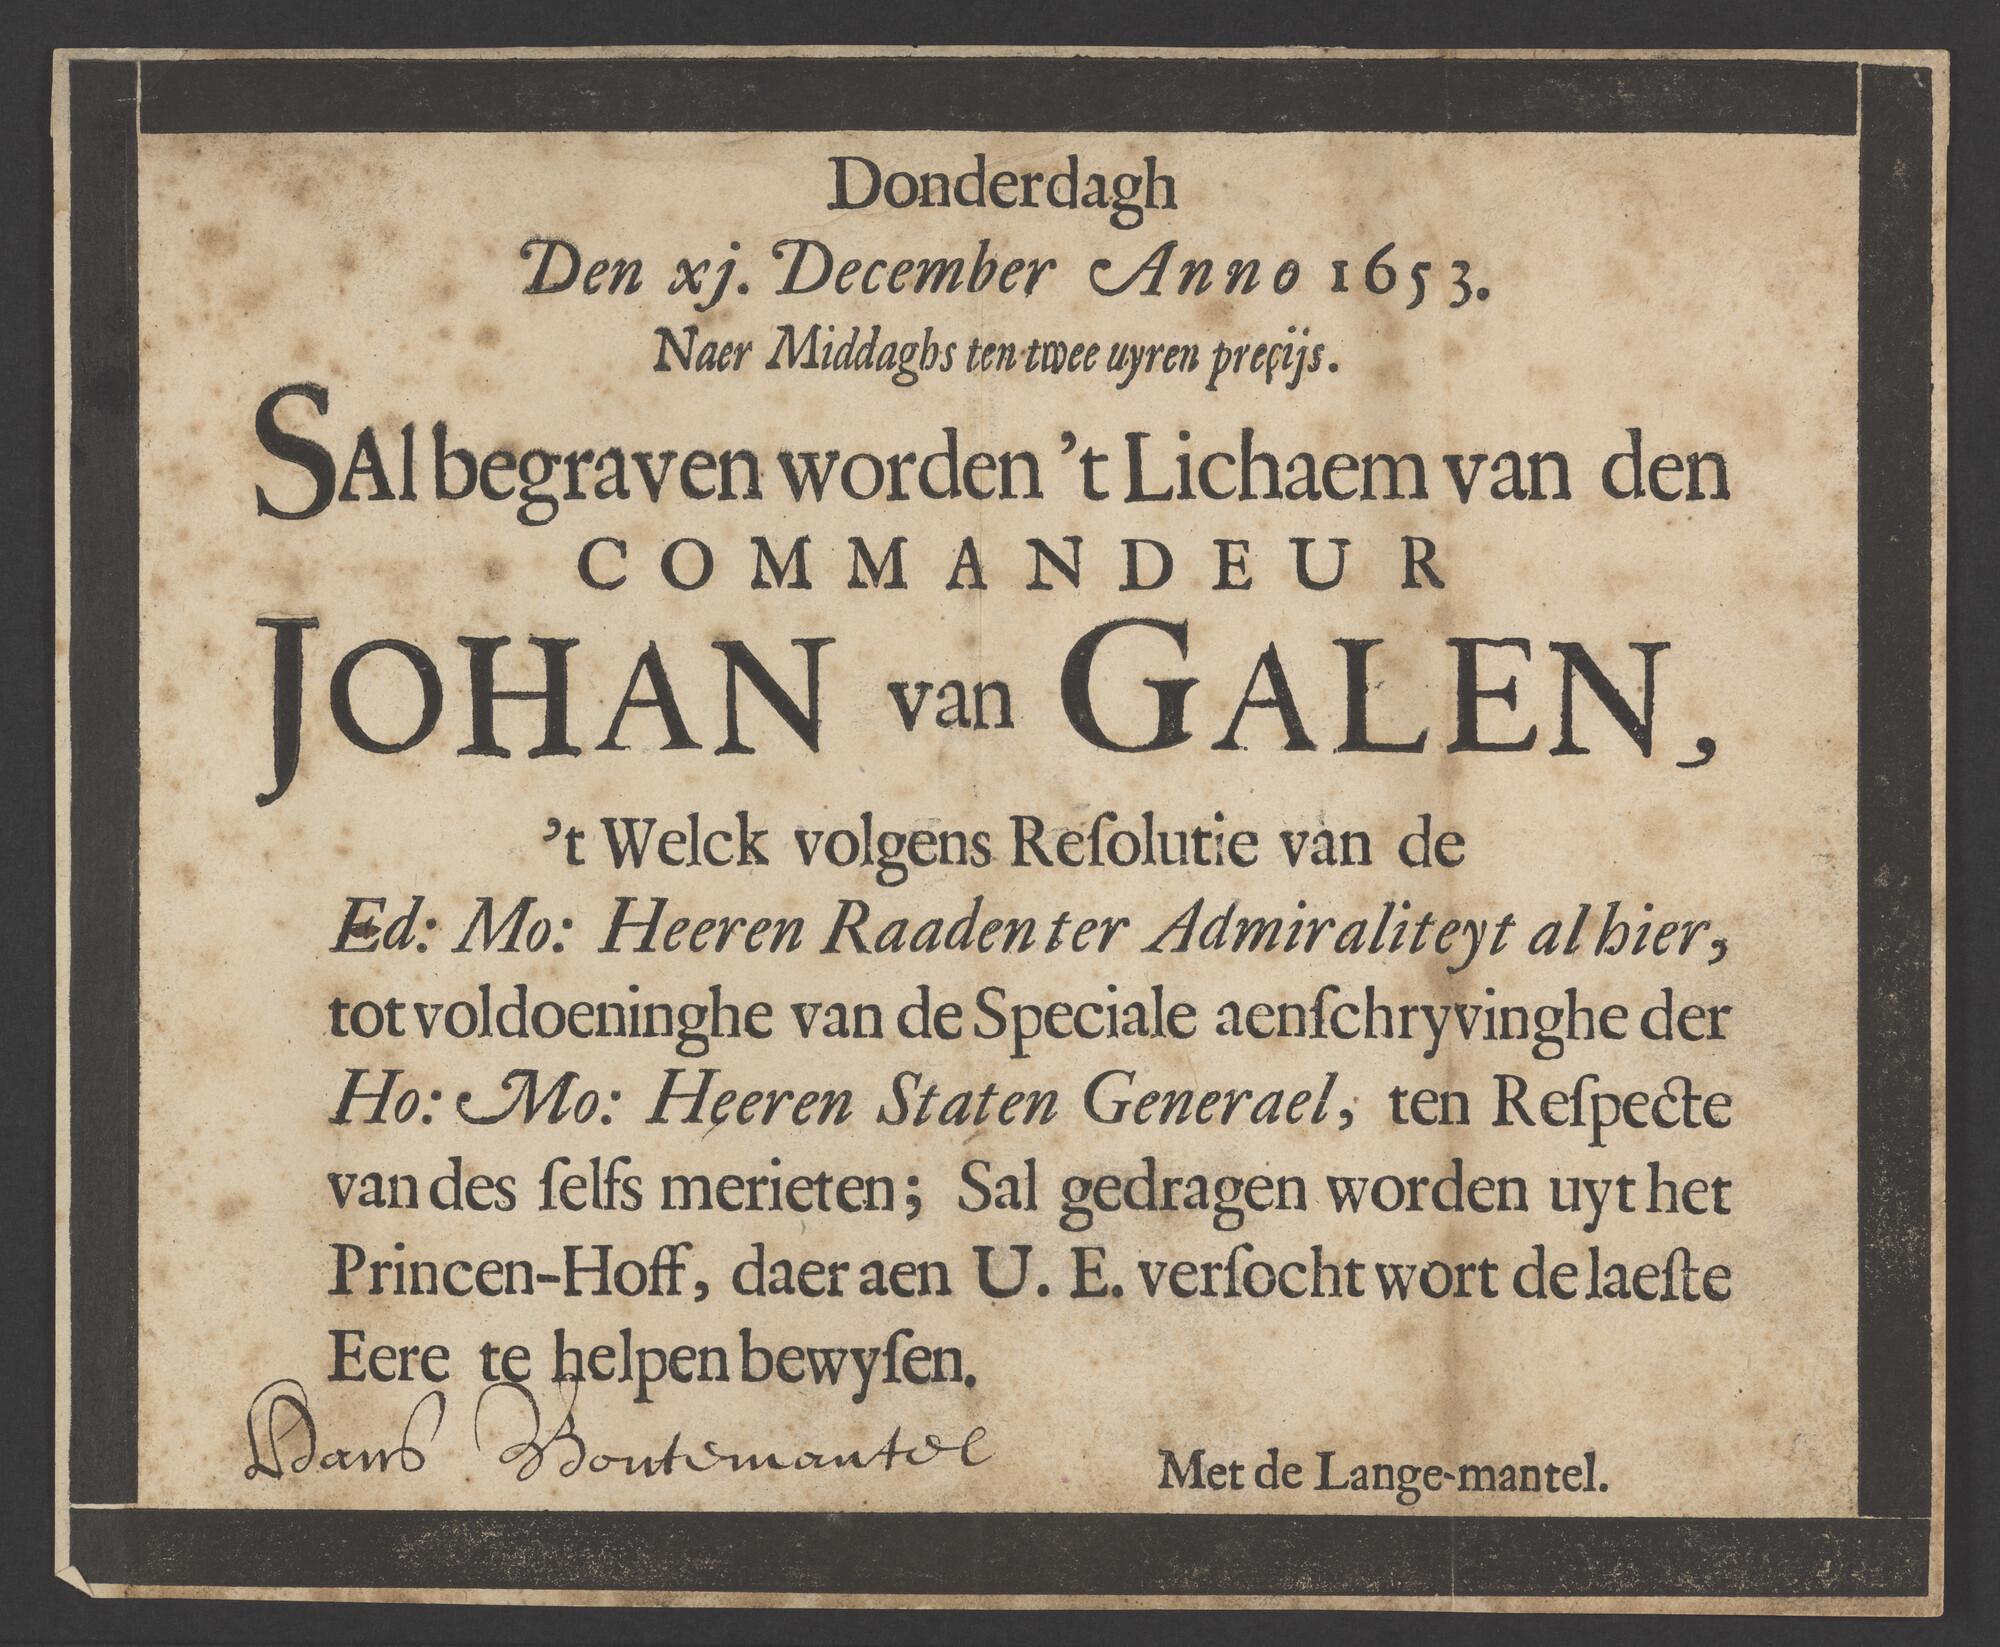 Donderdagh
Den xj. December Anno 1653.
Naer Middaghs ten twee uyren precijs.
SAl begraven worden 't Lichaem van den
COMMANDEUR
JOHAN van GALEN,
't Welck volgens Reſolutie van de
Ed: Mo: Heeren Raaden ter Admiraliteyt al hier,
tot voldoeninghe van de Speciale aenſchryvinghe der
Ho: Mo: Heeren Staten Generael, ten Reſpecte
van des ſelfs merieten; Sal gedragen worden uyt het
Princen-Hoff, daer aen U. E. verſocht wort de laeſte
Eere te helpen bewyſen.
Hans Bontemantel
Met de Lange-mantel.